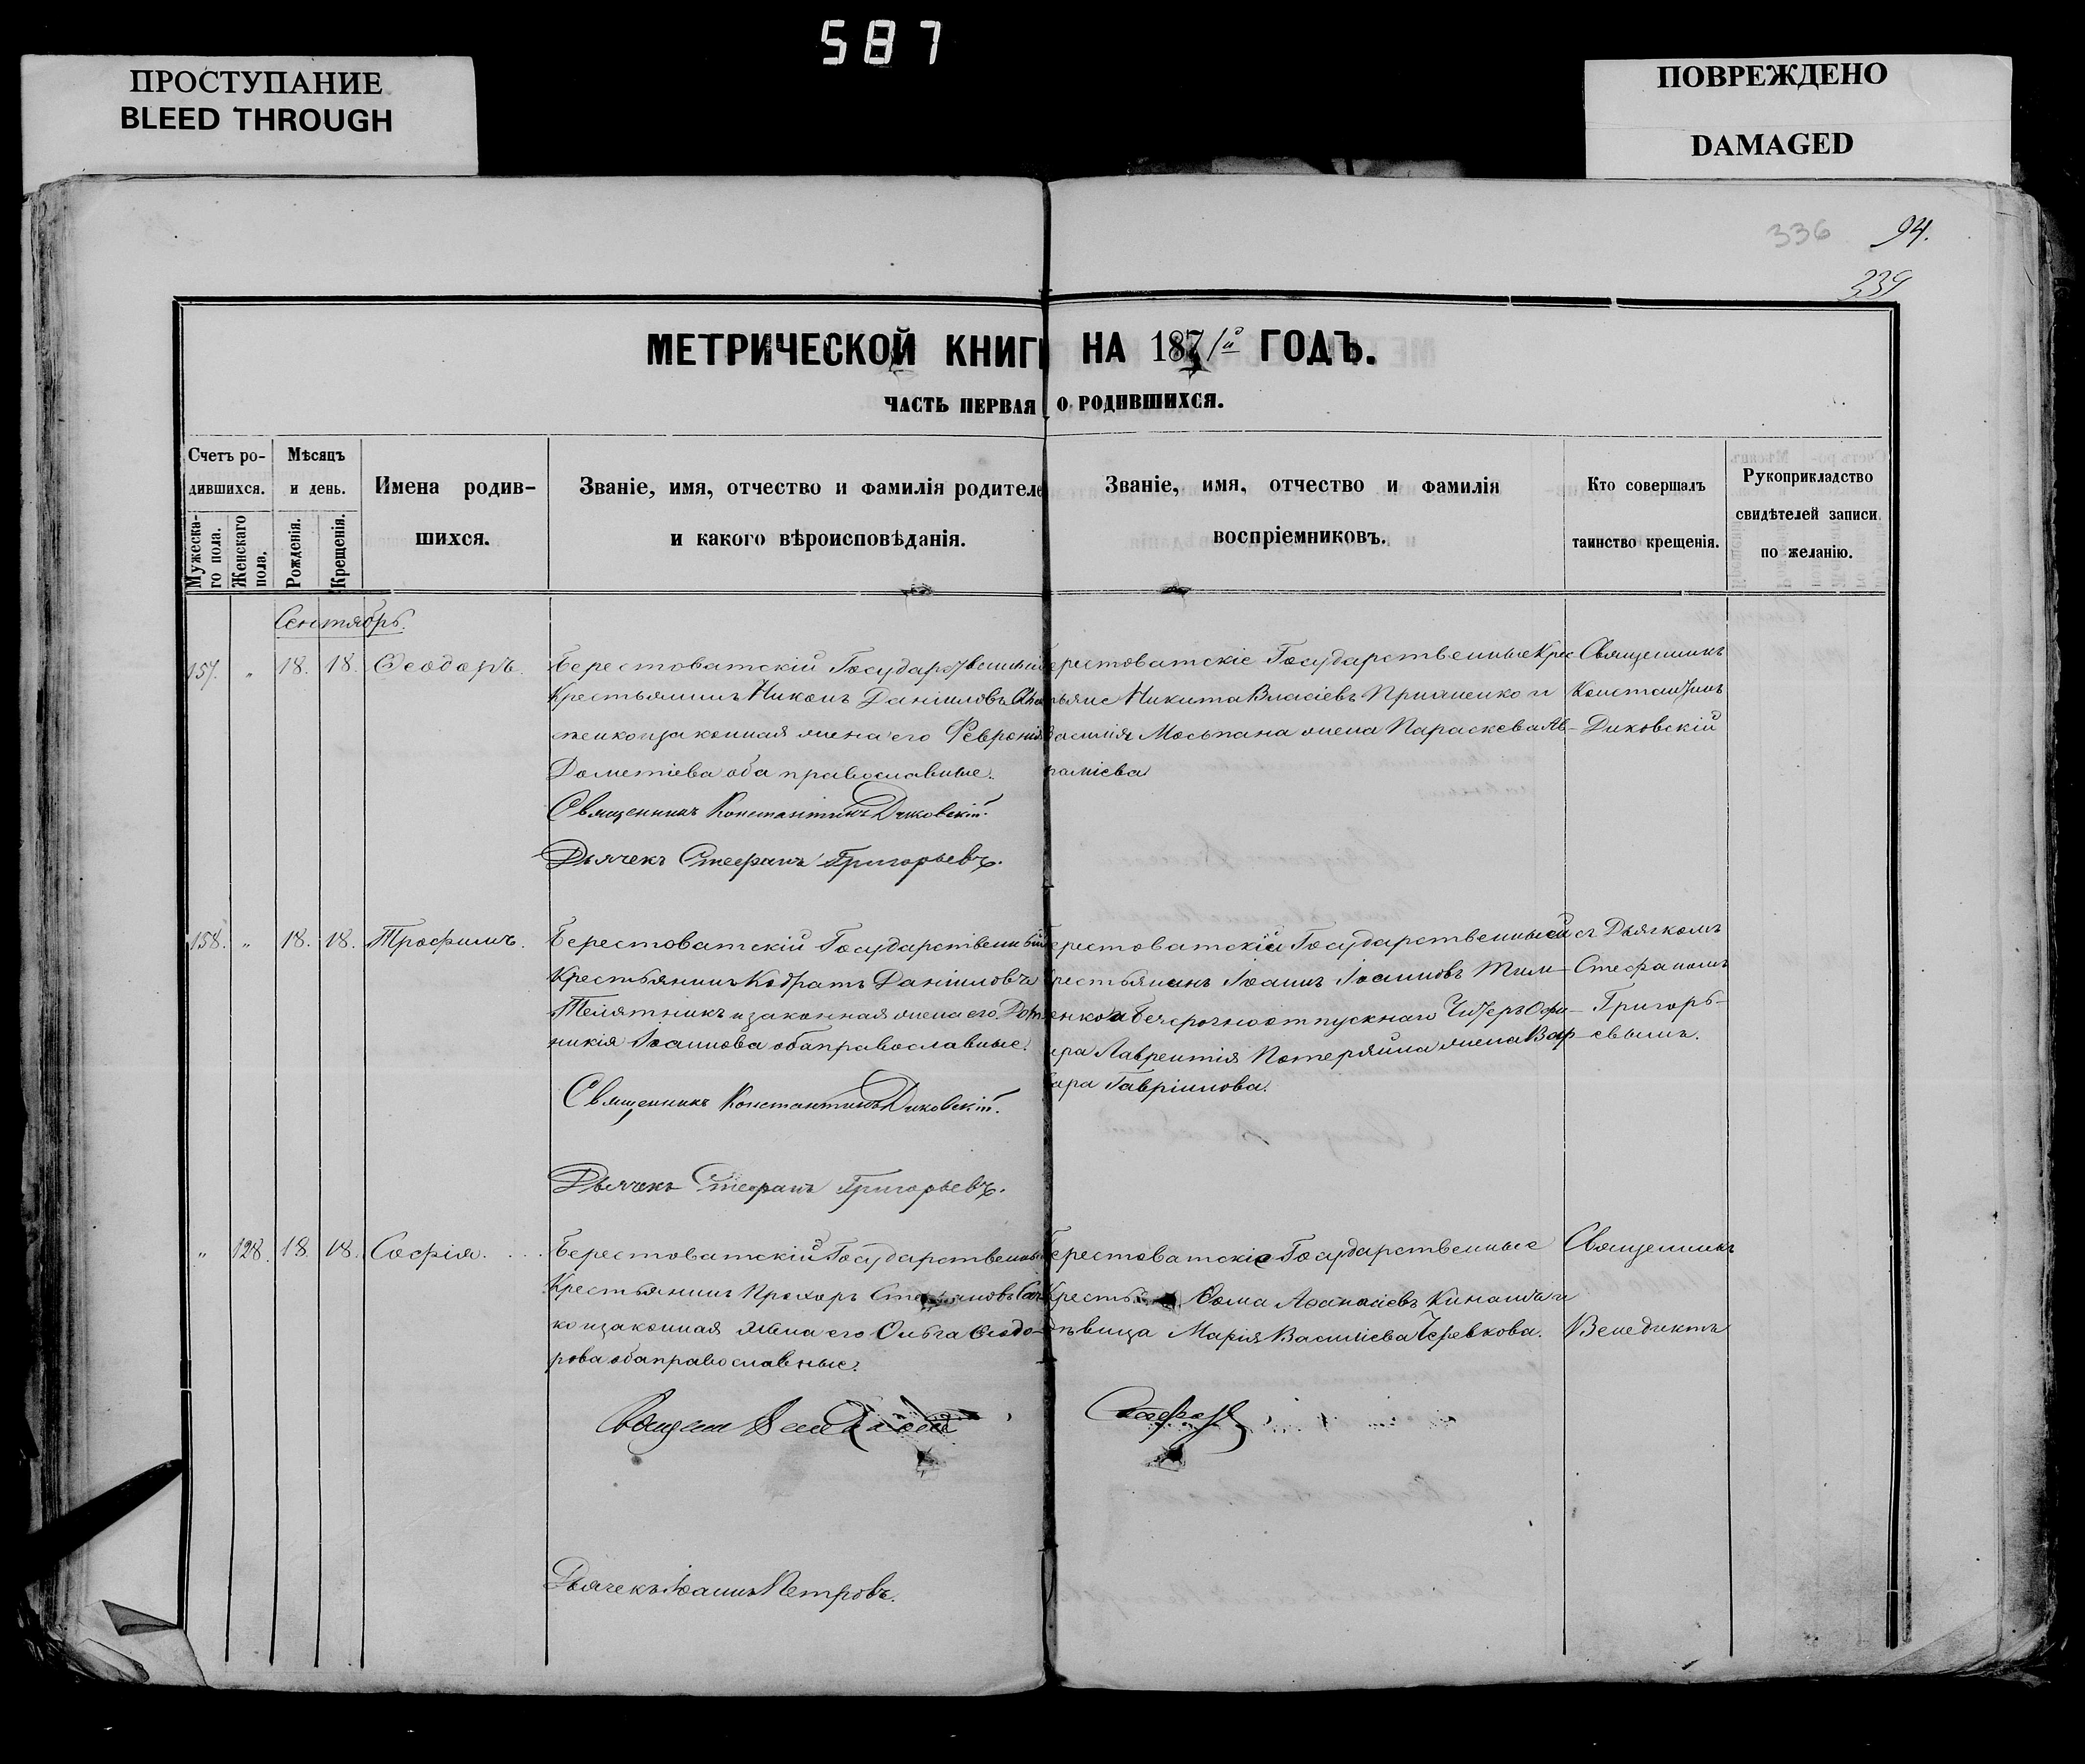 587
ПРОСТУПАНИЕ
BLEED THROUGH
ПОВРЕЖДЕНО
DAMAGED
336 94.
339
МЕТРИЧЕСКОЙ КНИГ НА 1871й ГОДЪ.
ЧАСТЬ ПЕРВАЯ О РОДИВШИХСЯ.
Счетъ ро-
дившихся.
Мужеска-
го пола.
Женскаго
пола.
Мѣсяцъ
и день.
Рожденія.
Крещенія.
Имена родив-
шихся.
Званіе, имя, отчество и фамилія родителе
и какого вѣроисповѣданія.
Званіе, имя, отчество и фамилія
воспріемниковъ.
Кто совершалъ
таинство крещенія.
Рукоприкладство
свидѣтелей записи
по желанію.
Сентябрь.
157. " 18. 18. Ѳеодоръ.
Берестоватскій Государственный
Крестьянинъ Никонъ Даніиловъ
законная жена его Февронія
Дометіева оба православные.
Священникъ Константинъ Диковскій.
Дьячекъ Стефанъ Григорьевъ.
ерестоватскіе Государственные Крес
тьяне Никита Власіевъ и
асилія Мосьпана жена Параскева Ав-
рамієва
Священникъ
Константинъ
Диковскій
158. " 18. 18. Трофимъ.
Берестоватскій Государственный
Крестьянинъ Кодратъ Даніиловъ
Телятникъ и законная жена его Дом
никія Іоаннова оба православные.
Священникъ Константинъ Диковскій.
Дьячекъ Стефанъ Григорьевъ.
ерестоватскій Государственный
рестьянинъ Іоаннъ Іоанновъ Тим-
енко и безсрочноотпускнаго Унтеръ Офи-
ера Лаврентія Потеряйла жена Вар-
ара Гавріилова.
съ Дьячкомъ
Стефаномъ
Григорь-
евымъ.
" 128. 18. 18. Софія.
Берестоватскій Государственный
Крестьянинъ Прохоръ
ко и законная жена его Ольга Ѳеодо-
рова оба православные.
Дьячекъ Іоаннъ Петровъ.
ерестоватскіе Государственные
Кресть Ѳома Аѳанасіевъ и
дѣвица Марія Василіева Черевкова.
Священникъ
Венедиктъ